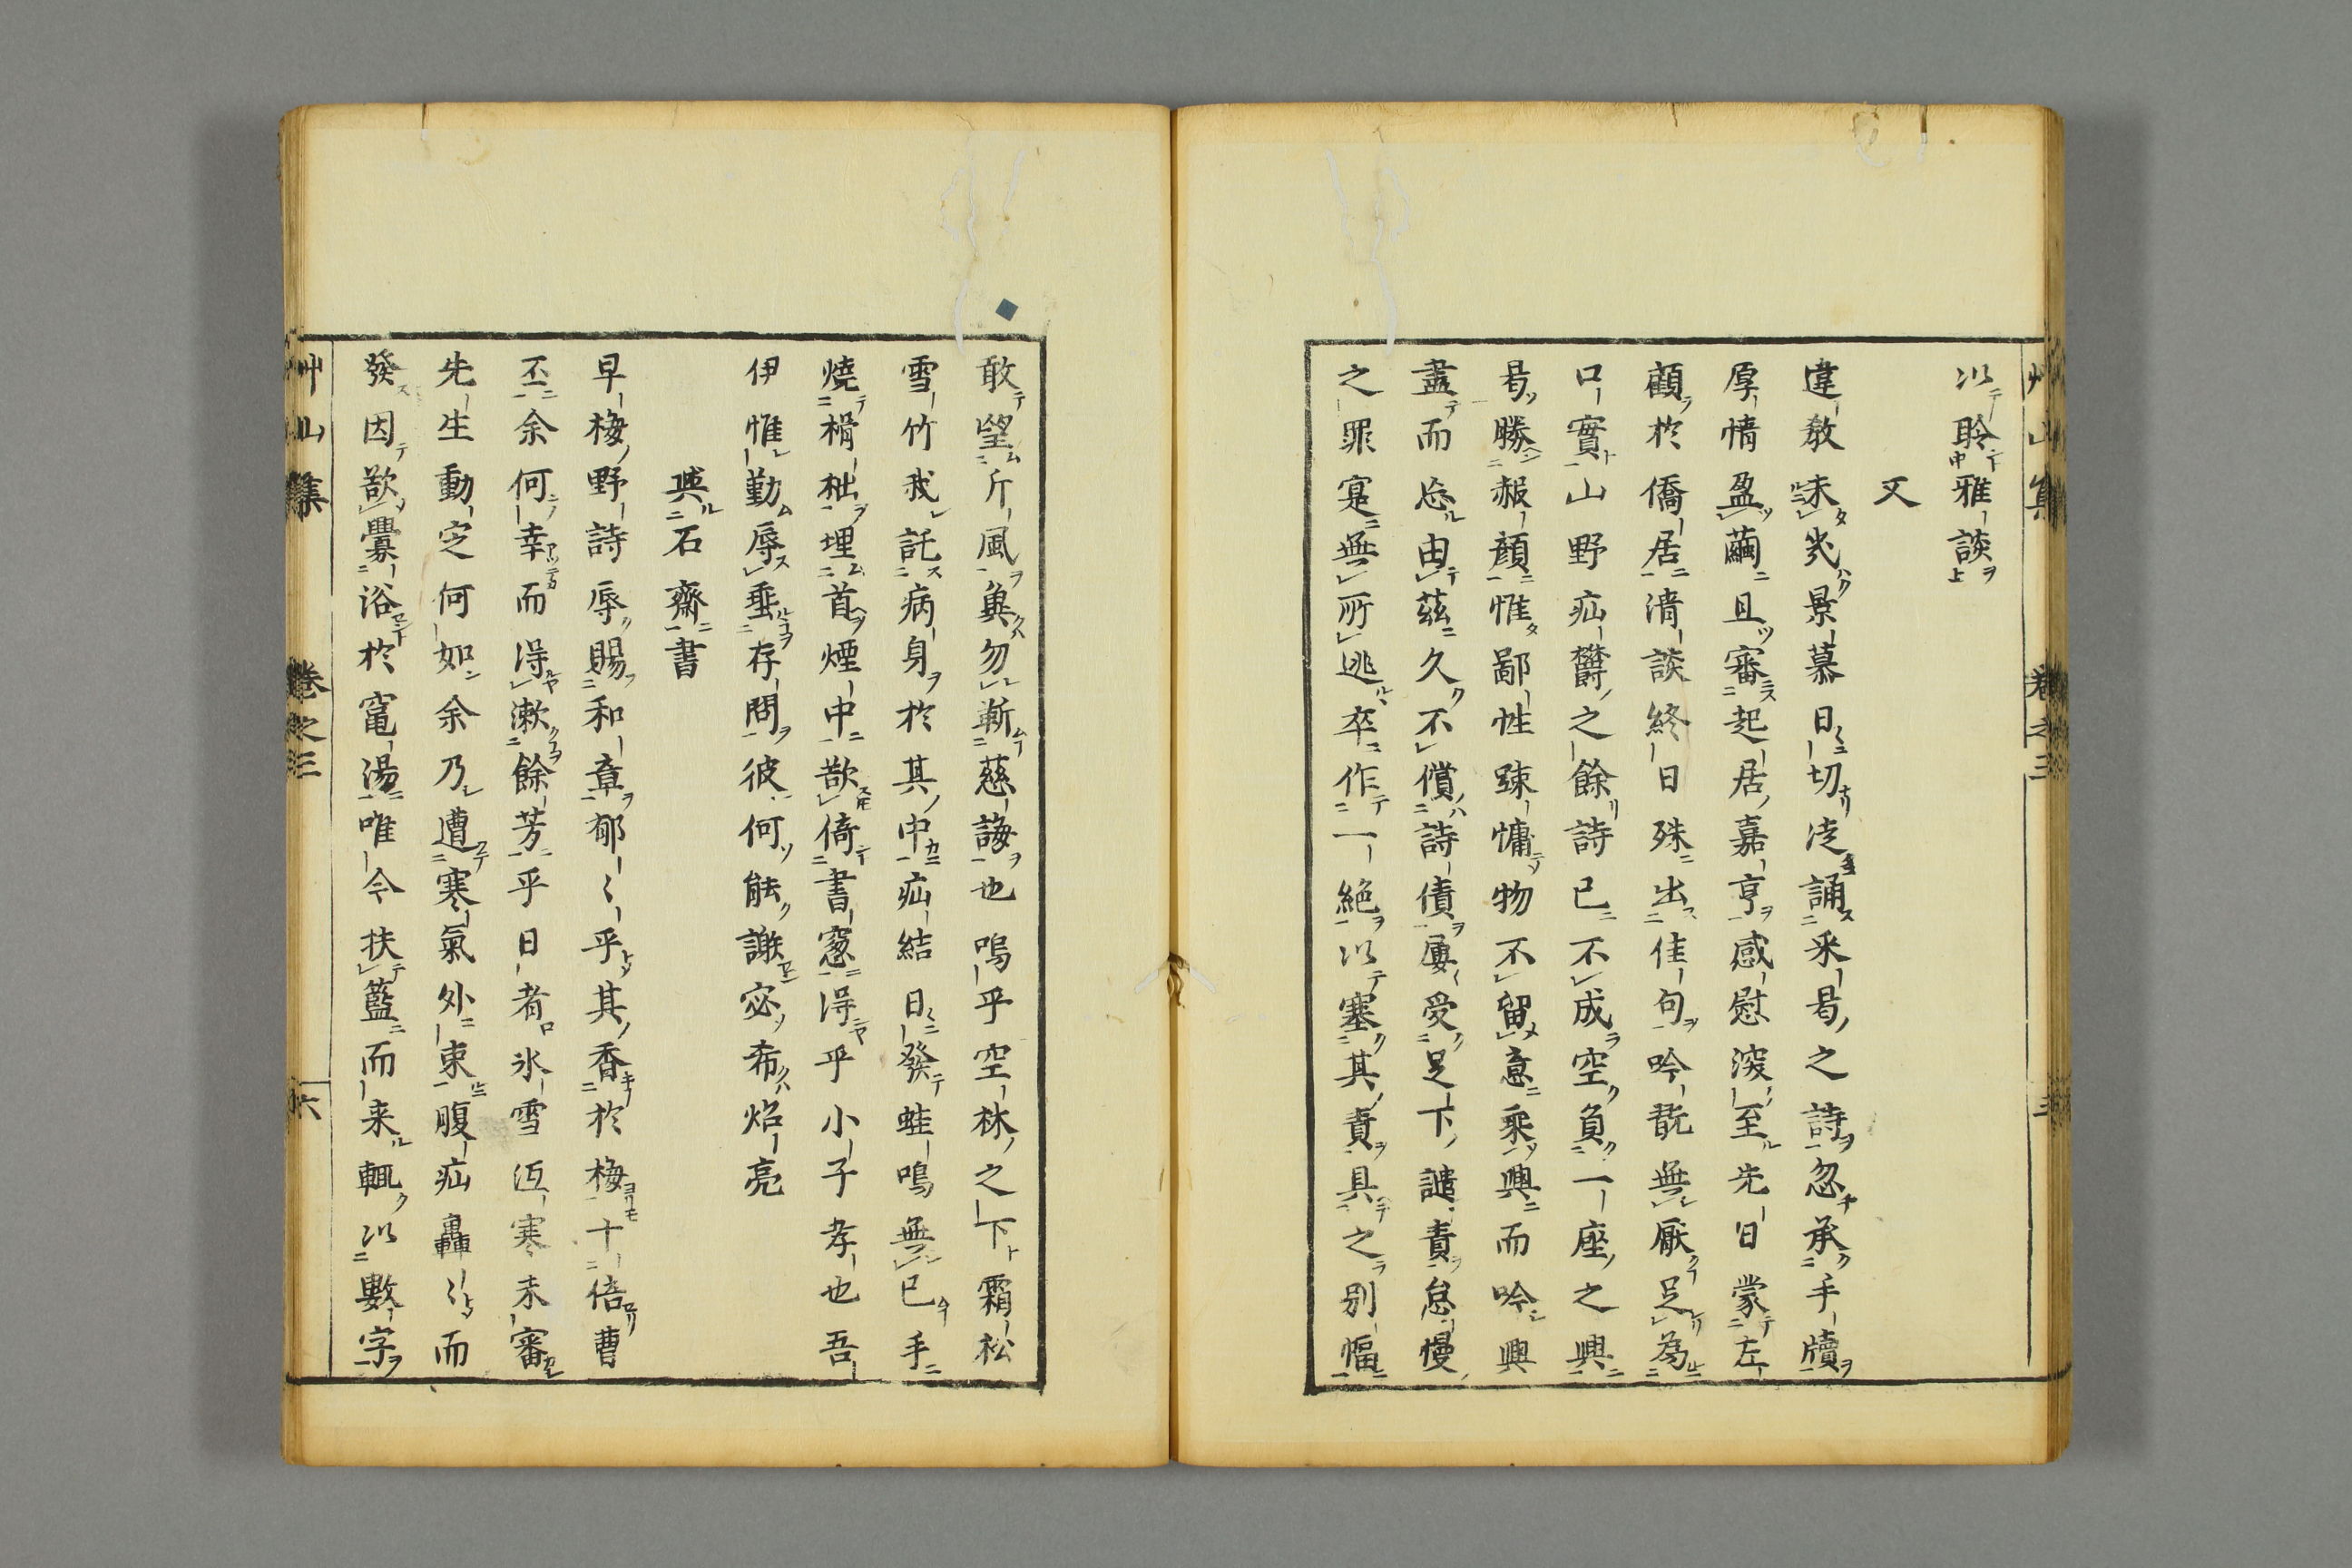 艸山集　卷之三
以聆雅談
又
違教未幾景慕日切徒誦采曷之詩忽承手牘
厚情盈繭且審起居嘉亨感慰深至先日蒙左
顧於僑居清談終日殊出佳句吟翫無厭足為
口實山野疝欝之餘詩已不成空負一座之興
曷勝赧顔惟鄙性踈慵物不留意乘興而吟興
盡而忘由茲久不償詩債屢受足下譴責怠慢
之罪寔無所逃卒作一絶以塞其責具之別幅
敢望斤風兾勿靳慈誨也嗚乎空林之下霜松
雪竹我託病身於其中疝結日發蛙鳴無已手
燒榾柮埋首煙中欹倚書窓得乎小子孝也吾
伊惟勤辱垂存問彼何能謝宻希炤亮
與石齋書
早梅野詩辱賜和章郁〻乎其香於梅十倍曹
丕余何幸而得漱餘芳乎日者氷雪沍寒未審
先生動定何如余乃遭寒氣外束腹疝轟〻而
發因欲爨浴於竃湯唯今扶籃而来輒以數字
艸山集　卷之三　六